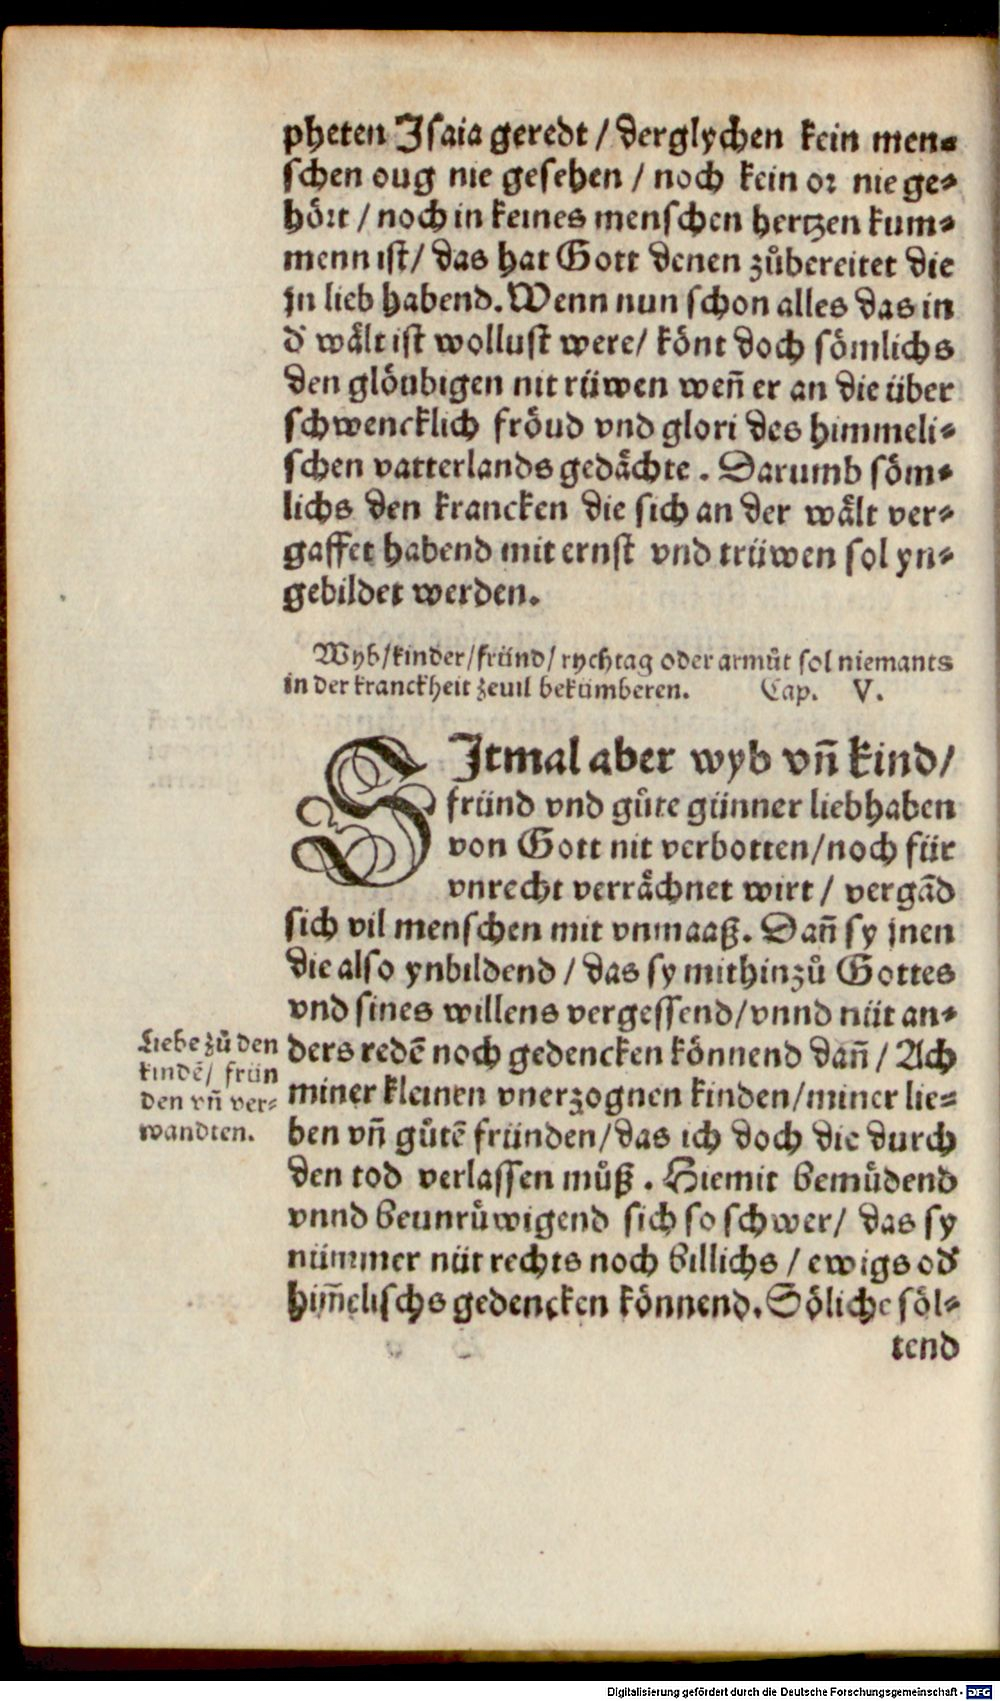 pheten Jsaia geredt / derglychen kein men⸗
schen oug nie gesehen / noch kein or nie ge⸗
hoͤrt / noch in keines menschen hertzen kum⸗
menn ist / das hat Gott denen zuͦbereitet die
jn lieb habend. Wenn nun schon alles das in
d' waͤlt ist wollust were / koͤnt doch soͤmlichs
den gloͤubigen nit ruͤwen weñ er an die uͤber
schwencklich froͤud vnd glori des himmeli⸗
schen vatterlands gedaͤchte. Darumb soͤm⸗
lichs den krancken die sich an der waͤlt ver⸗
gaffet habend mit ernst vnd truͤwen sol yn⸗
gebildet werden.
Wyb / kinder / fruͤnd / rychtag oder armuͦt sol niemants
in der kranckheit zeuil bekuͤmberen. Cap. V.
SJtmal aber wyb vñ kind /
fruͤnd vnd guͦte guͤnner liebhaben
von Gott nit verbotten / noch fuͤr
vnrecht verraͤchnet wirt / vergãd
sich vil menschen mit vnmaaß. Dañ sy jnen
die also ynbildend / das sy mithinzuͦ Gottes
vnd sines willens vergessend / vnnd nuͤt an⸗
ders redẽ noch gedencken koͤnnend dañ / Ach
miner kleinen vnerzognen kinden / miner lie⸗
ben vñ guͦtẽ fruͤnden / das ich doch die durch
den tod verlassen muͦß. Hiemit bemuͤdend
vnnd beunruͤwigend sich so schwer / das sy
nuͤmmer nuͤt rechts noch billichs / ewigs od'
him̃elischs gedencken koͤnnend. Soͤliche soͤl⸗
tend
Liebe zuͦ den
kindẽ / fruͤn
den vñ ver⸗
wandten.
Digitalisierung gefördert durch die Deutsche Forschungsgemeinschaft - DFG